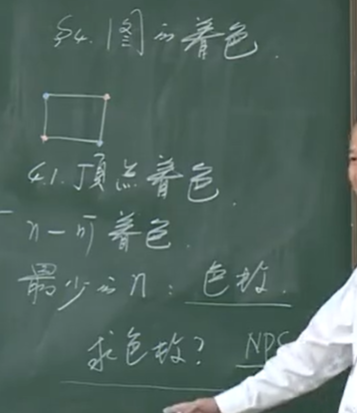 §4. 图的着色.
4.1. 顶点着色.
n-可着色.
最少的n: 色数.
求色数? NPC